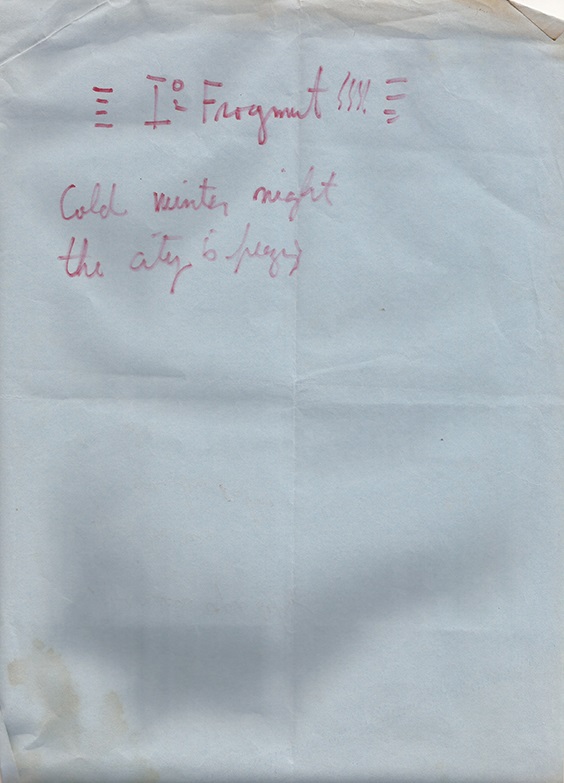 ≡ I° Fragment !!!! ≡
Cold winter night
the city is